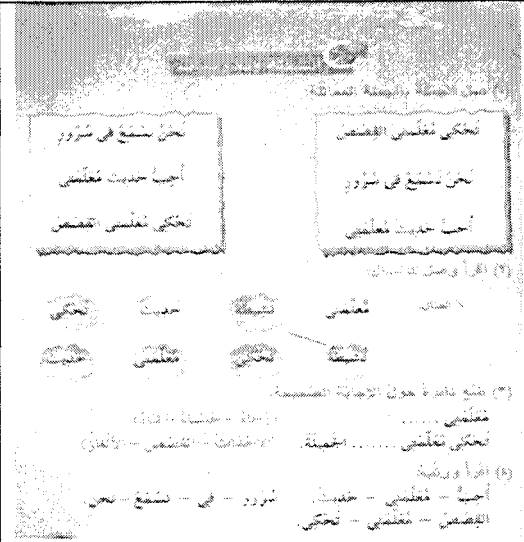 (١) صل الجملة بالجملة المماثلة
تَحْكي مُعَلِّمَتي القِصَصَ
نَحْنُ نَسْتَمِعُ في سُرُورٍ
أُحِبُّ حَديثَ مُعَلِّمَتي
نَحْنُ نَسْتَمِعُ في سُرُورٍ
أُحِبُّ حَديثَ مُعَلِّمَتي
تَحْكي مُعَلِّمَتي القِصَصَ
(٢) اقرأ وصل
مُعَلِّمَتي نَشيطَةٌ حَديثَ تَحْكي
نَشيطَةٌ تَحْكي مُعَلِّمَتي حَديثَ
(٣) ضع دائرة حول الإجابة الصحيحة
مُعَلِّمَتي ......
تَحْكي مُعَلِّمَتي ...... الجَميلَةَ. القصص – الألغاز)
(٤) اقرأ ورتب
أُحِبُّ – مُعَلِّمَتي – حَديثَ. سُرُورٍ – في – نَسْتَمِعُ – نَحْنُ.
القِصَصَ – مُعَلِّمَتي – تَحْكي.